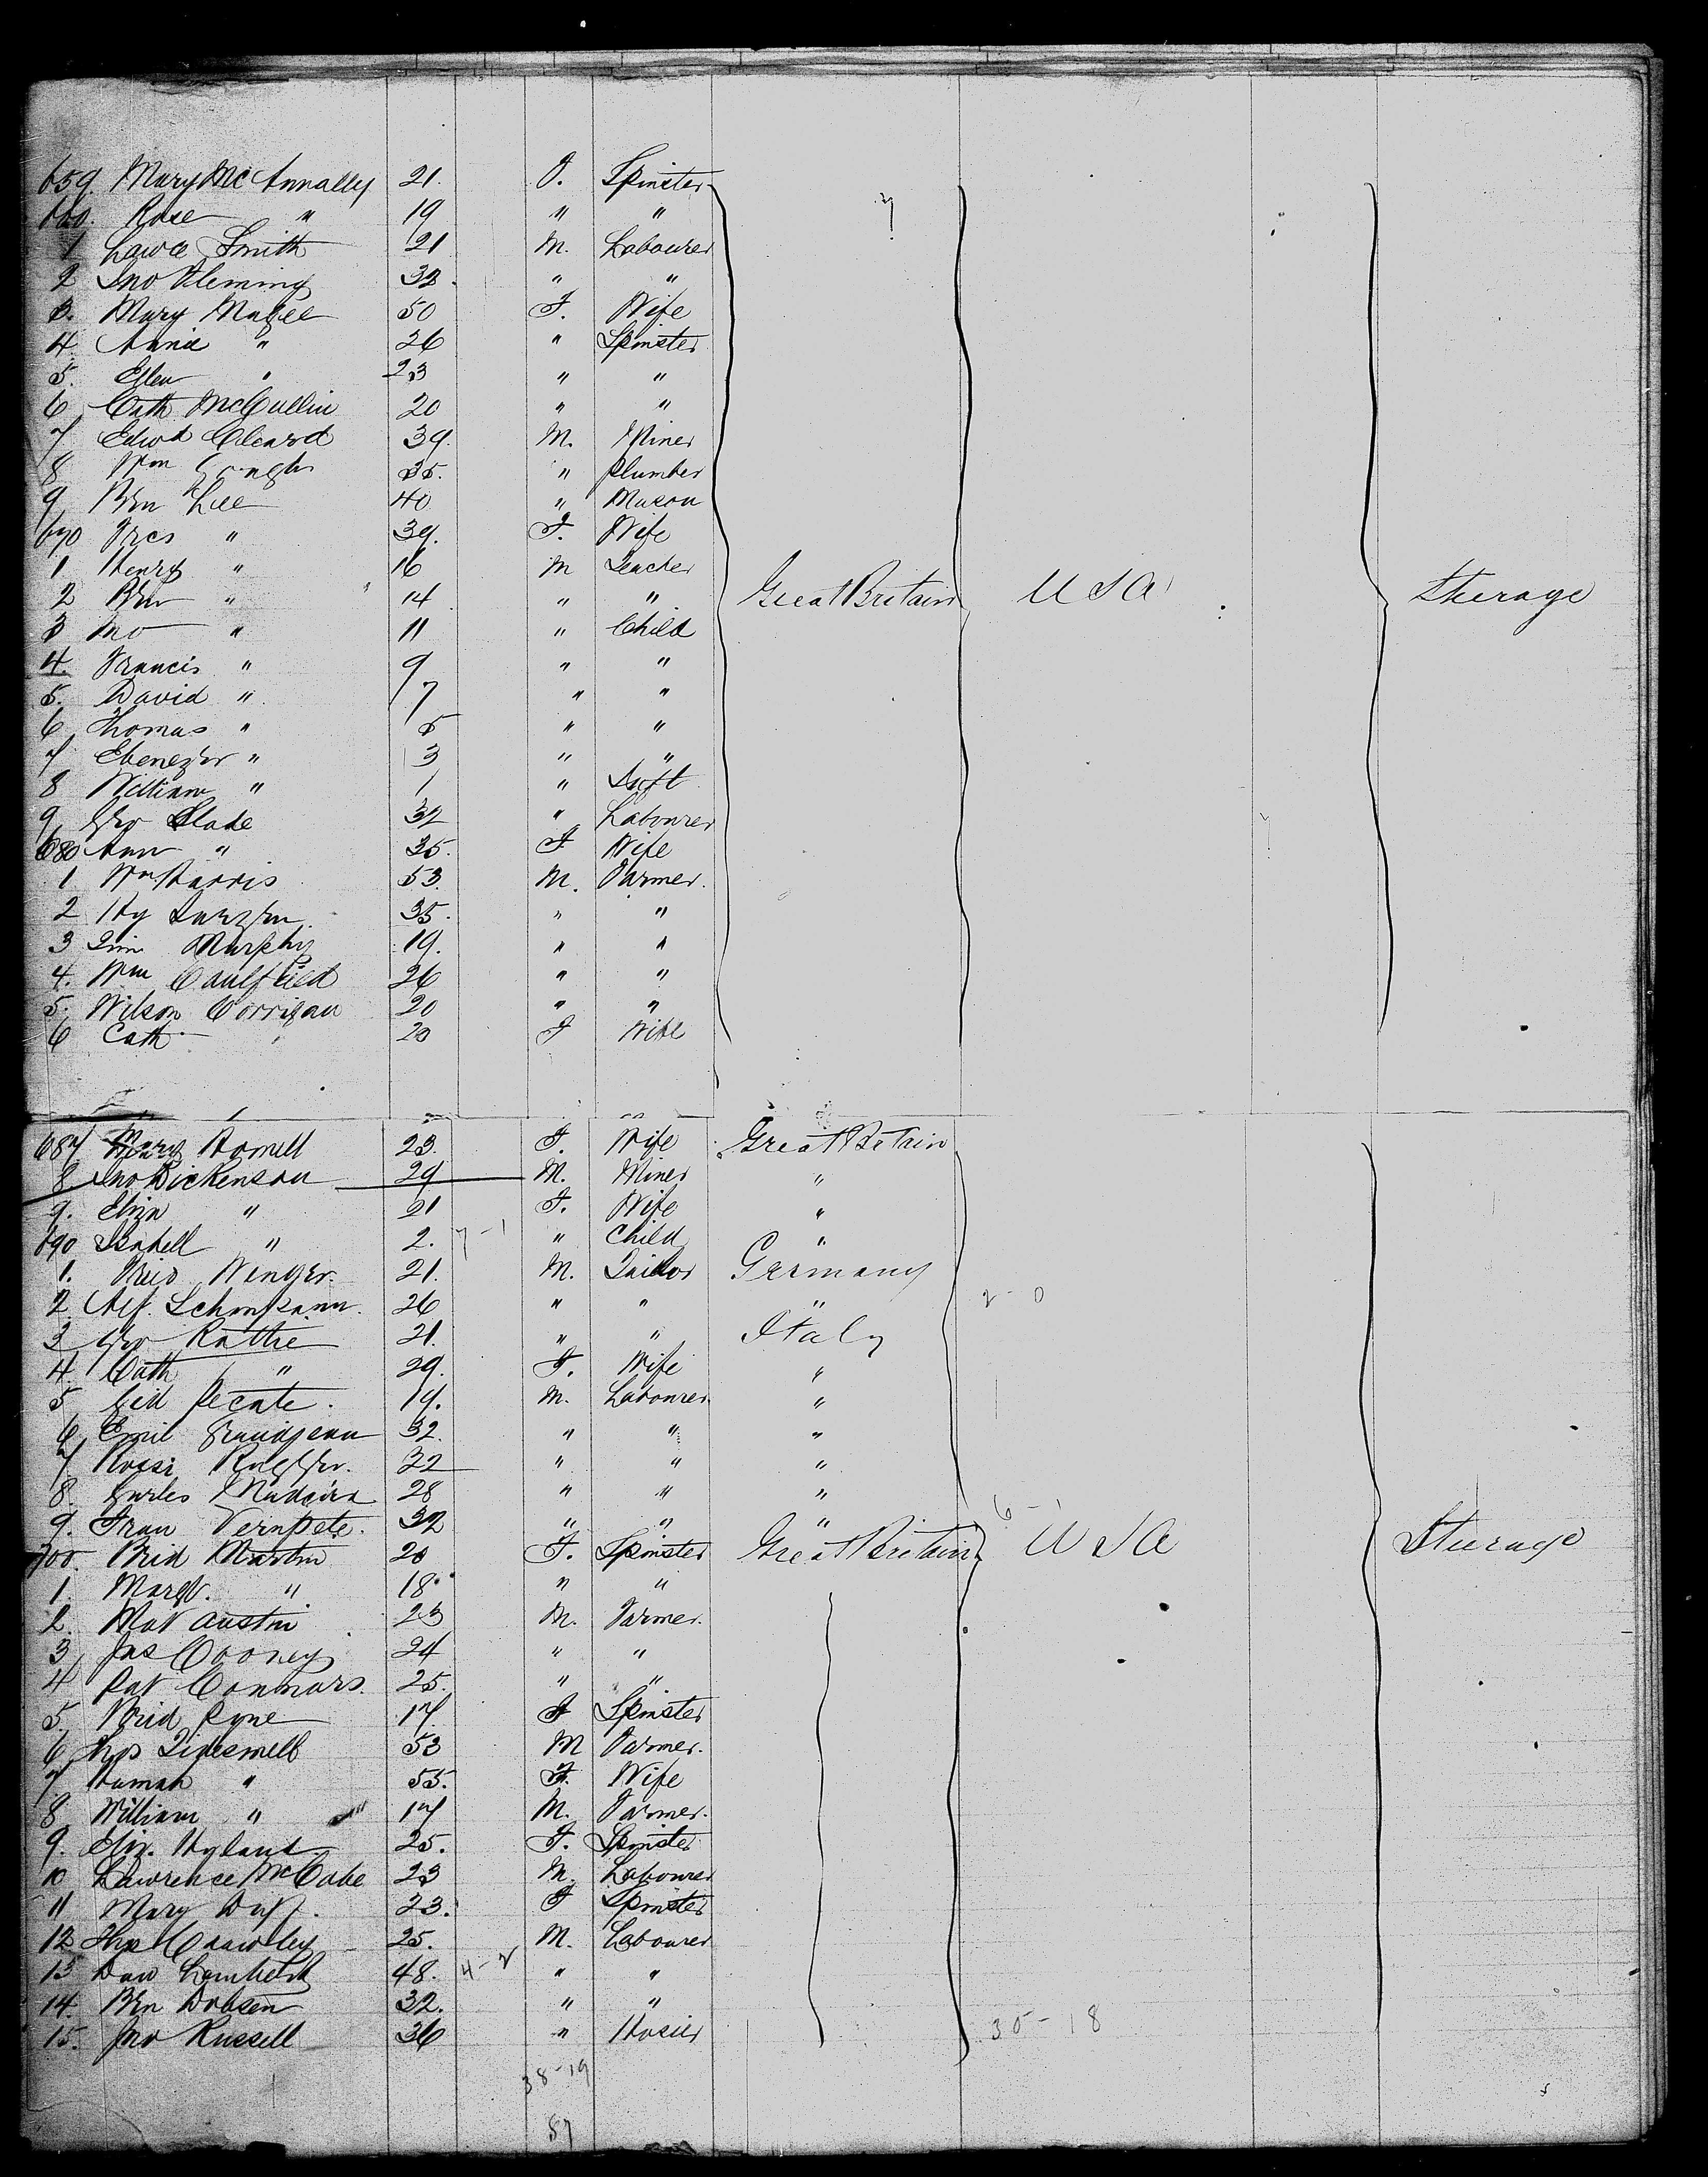 659. Mary McAnnally 21. F. Spinster
660. Rose " 19 " "
1 Lawce Smith 21 M. Labourer
2 Jno Fleming 32. " "
3. Mary Magee 50 F. Wife
4 Annie " 26 " Spinster
5. Ellen " 23 " "
6 Cath McCullin 20 " "
7 Edwd 39. M. Miner
8 Wm Gough 35. " plumber
9 Ben Lee 40 " Mason
670 Fres " 39. F. Wife
1 Henry " 16 M Teacher
2 Ben " 14 " " Great Britain USA Steerage
3 Jno " 11 " Child
4. Francis " 9 " "
5. David " 7 " "
6 Thomas " 5 " "
7 Ebenezer " 3 " "
8 William " 1 "
9 Geo Slade 32 " Labourer
680 Ann " 35. F Wife
1 Wm Harris 53. M. Farmer.
2 Hy 35. " "
3 Jim Murphy 19. " "
4. Wm Caulfield 26 " "
5. Wilson Corrigan 20 " "
6 Cath 20 F Wife
687 Mary Howell 23. F. Wife Great Britain
8 Jno Dickenson 29 M. Miner "
9. Eliza " 21 F. Wife "
690 Isabell " 2. 7-1 " Child "
1. Wenger. 21. M. Tailor Germany
2 Alf. 26 " " " 2-0
3 Geo Rattie 21. " " Italy
4. Cath " 29. F. Wife "
5 19. M. Labourer "
6 Emil Grandjean 32. " " "
7 Rossi 22 " " "
8. 28 " " "
9. Fran 32 " " " 6-1
700. Brid Martin 20 F. Spinster Great Britain USA Steerage
1. Margt. " 18. " "
2. Mat Austin 23 M. Farmer.
3 Jas Cooney 24 " "
4 Pat Connors. 25. " "
5. Brid Ryne 17. F Spinster
6 Thos Tideswell 53 M Farmer.
7 Hannah " 55. F. Wife
8 William " 17 M. Farmer.
9. Eliz. Hyland 25. F. Spinster
10 Lawrence McCabe 23 M. Labourer
11 Mary Duff. 23. F Spinster
12 Thos Crawley 25. M. Labourer
13 Dan 48. 4-2 " "
14. Ben Dobson 32. " "
15. Jno Russell 36 " Hosier 30-18
38-19
57